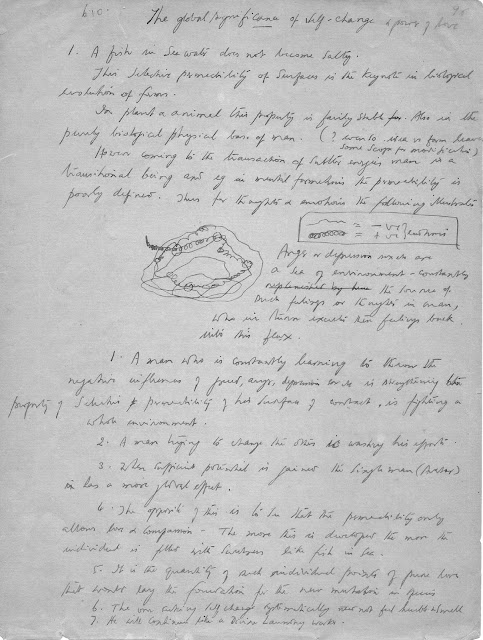 610.
The global significance of self-change a power of love
1. A fish in sea water does not become salty.
This selective permeability of surfaces is the keynote in biological
evolution of forms.
In plant & animal this property is fairly stable. Also in the
purely biological physical base of man. (? even to idea & form
some scope for modification)
However coming to the transaction of subtler energies man is a
transitional being and eg in mental formations the permeability is
poorly defined. Thus for thoughts & emotions the following illustrates
= - ve
= + ve } emotions
Anger or depression such are
a sea of environment - constantly
replenished by the source of
such feelings or thoughts in man,
who in turn excretes his feelings back
into this flux.
1. A man who is constantly learning to throw the
negative influences of greed, anger, depression is strengthening
property of selective permeability of his surface of contact, is fighting a
whole environment.
2. A man trying to change the others is wasting his efforts.
3. When sufficient potential is gained the single man
has a more global effect.
4. The opposite of this is to see that the permeability only
allows love & compassion - The more this is developed the more the
individual is filled with sweetness like fish in sea.
5. It is the quantity of such individual points of pure love
that would lay the foundation for the new mutation in species
6. The one self change systematically need not feel humble & small
7. He will continue like a Divine Laundry works.